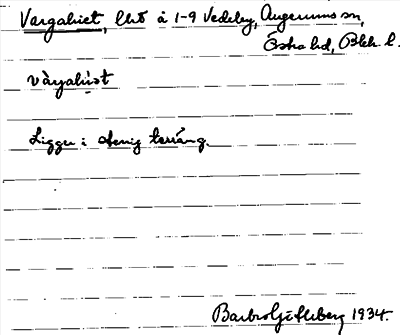 Vargahiet, lht å 1-9 Vedeby, Augerums sn,
Östra hd, Blek. l.
Ligger i stenig terräng.
Barbro Söderberg 1934.